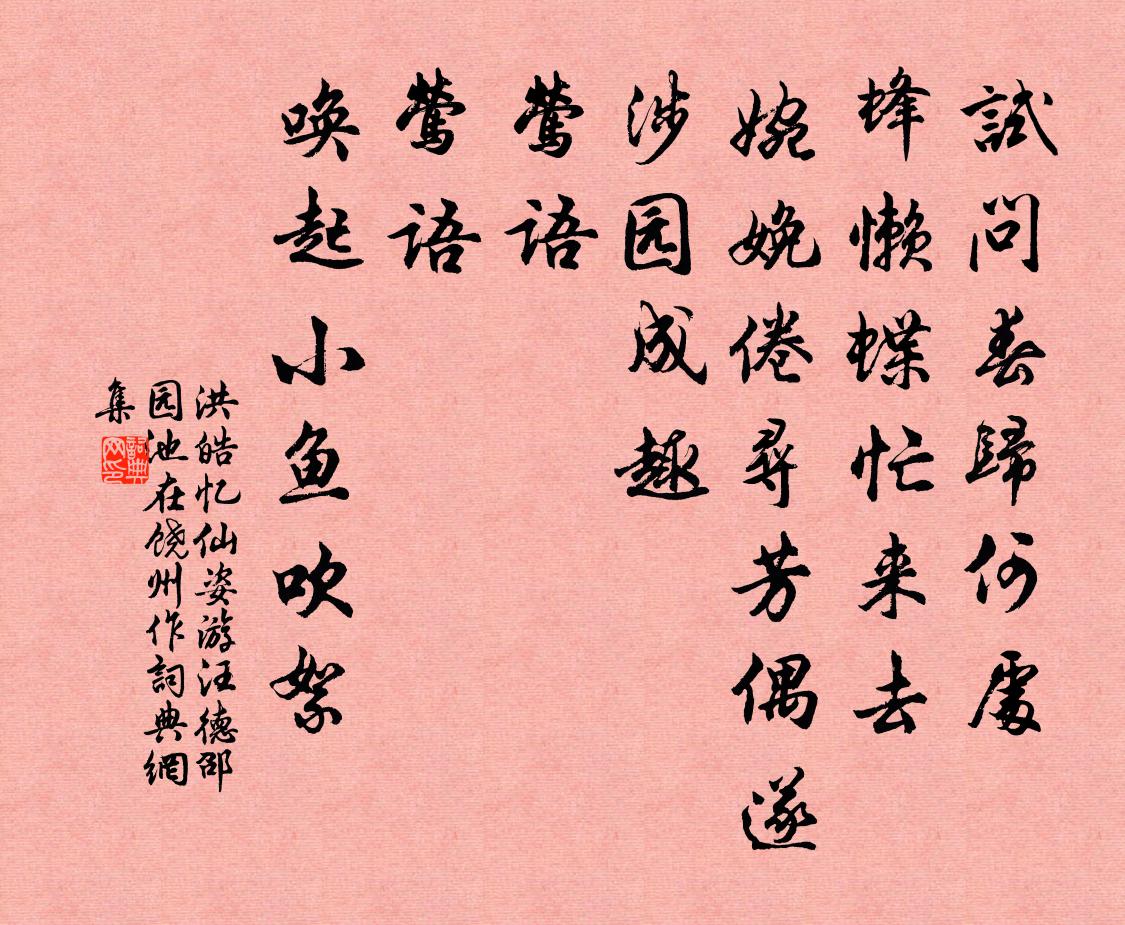 試问春歸何處
蜂懒蝶忙来去
婉娩倦尋芳偶遂
涉园成趣
莺语
莺语
唤起小鱼吹絮
洪皓忆仙姿游汪德邵
园池在饶州作詞典網
集
詞典网印